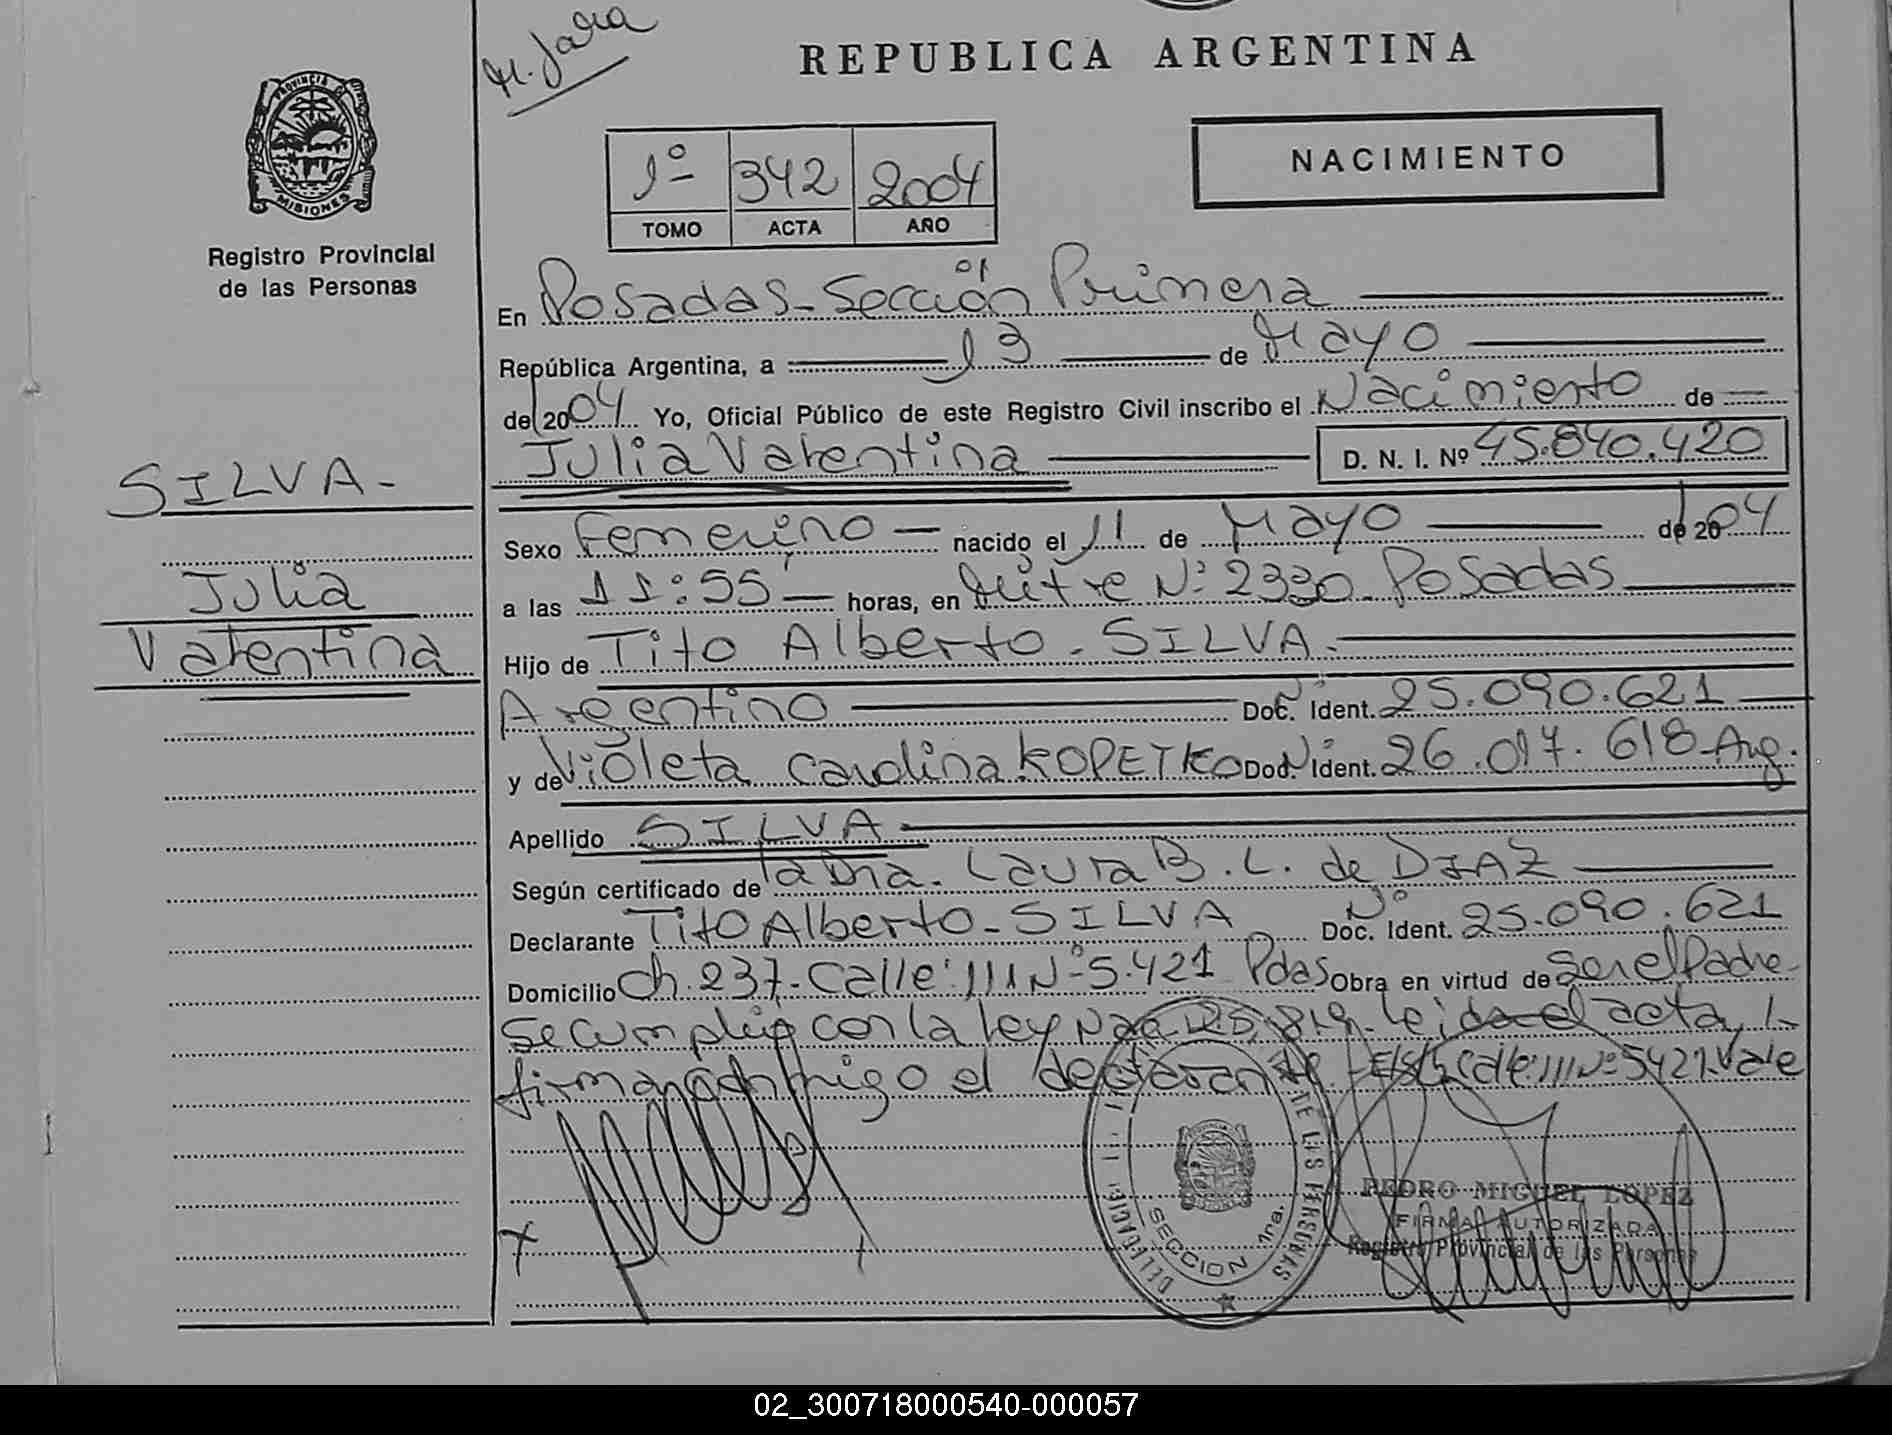 M. Jara
REPUBLICA ARGENTINA
PROVINCIA DE
MISIONES
Registro Provincial
de las Personas
NACIMIENTO
1º 342 2004
TOMO ACTA AÑO
En Posadas - Sección Primera
República Argentina, a 13 de Mayo
de 2004 Yo, Oficial Público de este Registro Civil inscribo el Nacimiento de
Julia Valentina D. N. I. Nº 45.840.420
SILVA-
Julia
Valentina
Sexo Femenino nacido el 11 de Mayo de 2004
a las 11:55 horas, en Mitre Nº 2330 Posadas
Hijo de Tito Alberto - SILVA -
Argentino Doc. Ident. 25.090.621
y de Violeta Carolina KOPETKO Doc. Nº Ident. 26.017.618 - Arg.
Apellido SILVA
Según certificado de la Dra. Laura B. L. de DIAZ
Declarante Tito Alberto - SILVA Doc. Ident. Nº 25.090.621
Domicilio Ch. 237 - Calle: 111 Nº 5.421 Pdas Obra en virtud de Ser el Padre
Se cumplió con la ley Nac. 25.819. leida el acta, la
firma conmigo el declarante - E/S/ Calle: 111 Nº 5421. Vale
DE LAS PERSONAS
SECCION 1ra.
PEDRO MIGUEL LOPEZ
FIRMA AUTORIZADA
Registro Provincial de las Personas
02_300718000540-000057